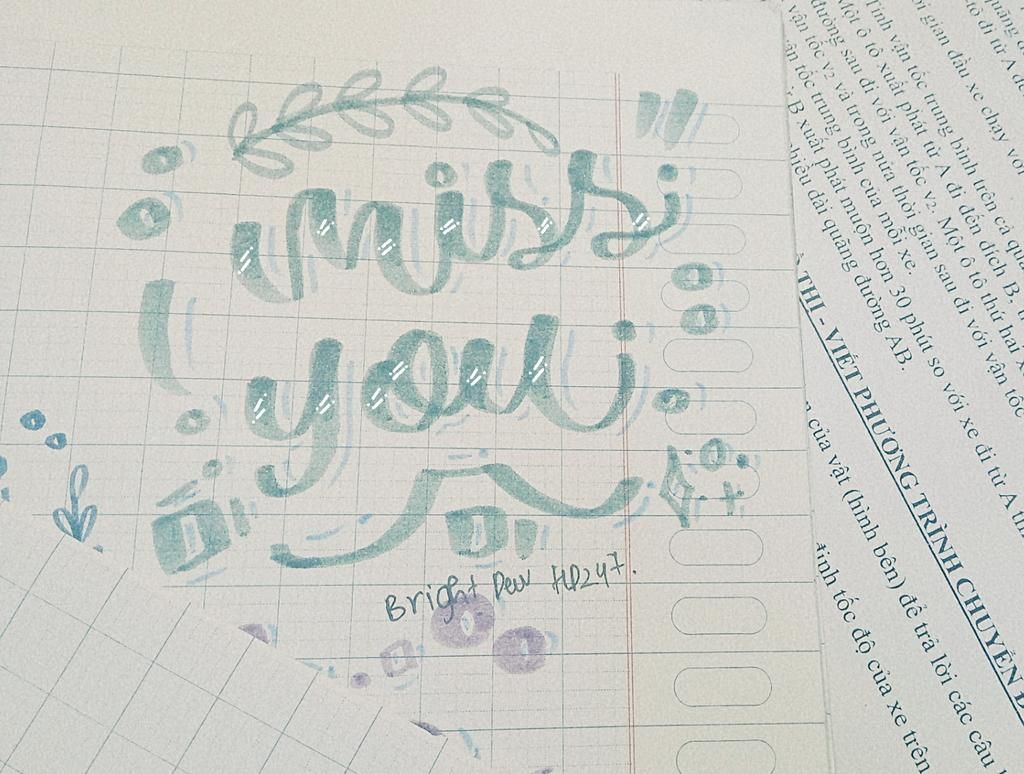 miss
you
Bright Dew HD247.
Tính vận tốc trung bình trên cả
gian đầu xe chạy với
Một ô tô xuất phát từ A đi đến đích B, t
đường sau đi với vận tốc v2. Một ô tô thứ hai
vận tốc v2 và trong nửa thời gian sau đi với vận tốc
tốc trung bình của mỗi xe.
B xuất phát muộn hơn 30 phút so với xe đi từ A
chiều dài quãng đường AB.
THỊ - VIẾT PHƯƠNG TRÌNH CHUYỂN
của vật (hình bên) để trả lời các câu
định tốc độ của xe trên